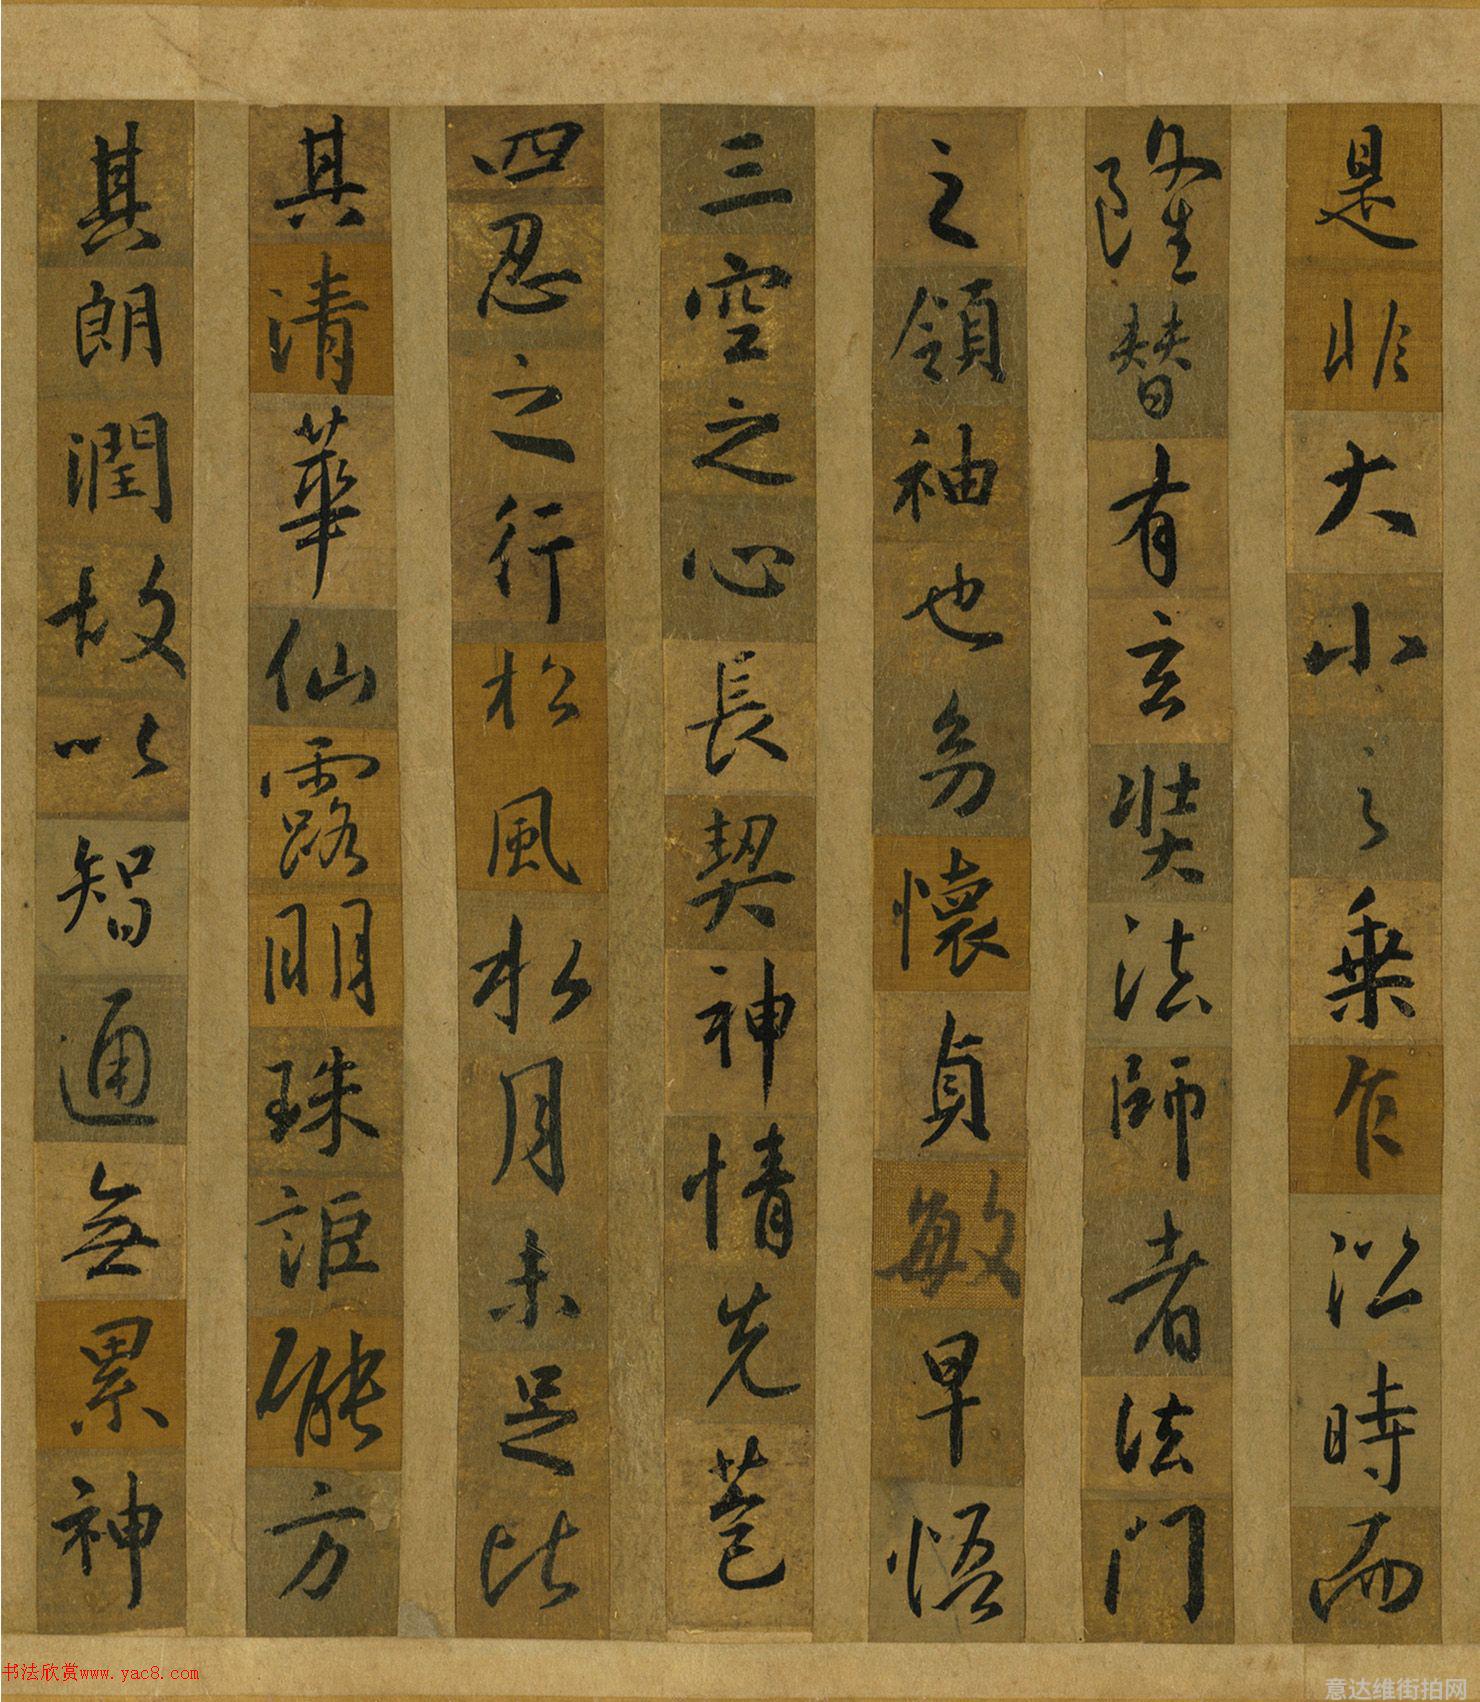 是非大小之乗乍㳂時而
隆替有玄奘法師者法門
之領袖也㓜懷貞敏早悟
三空之心長契神情先苞
四忍之行松風水月未足比
其清華仙露明珠詎能方
其朗潤故以智通無累神
书法欣赏www.yac8.com
意达维街拍网